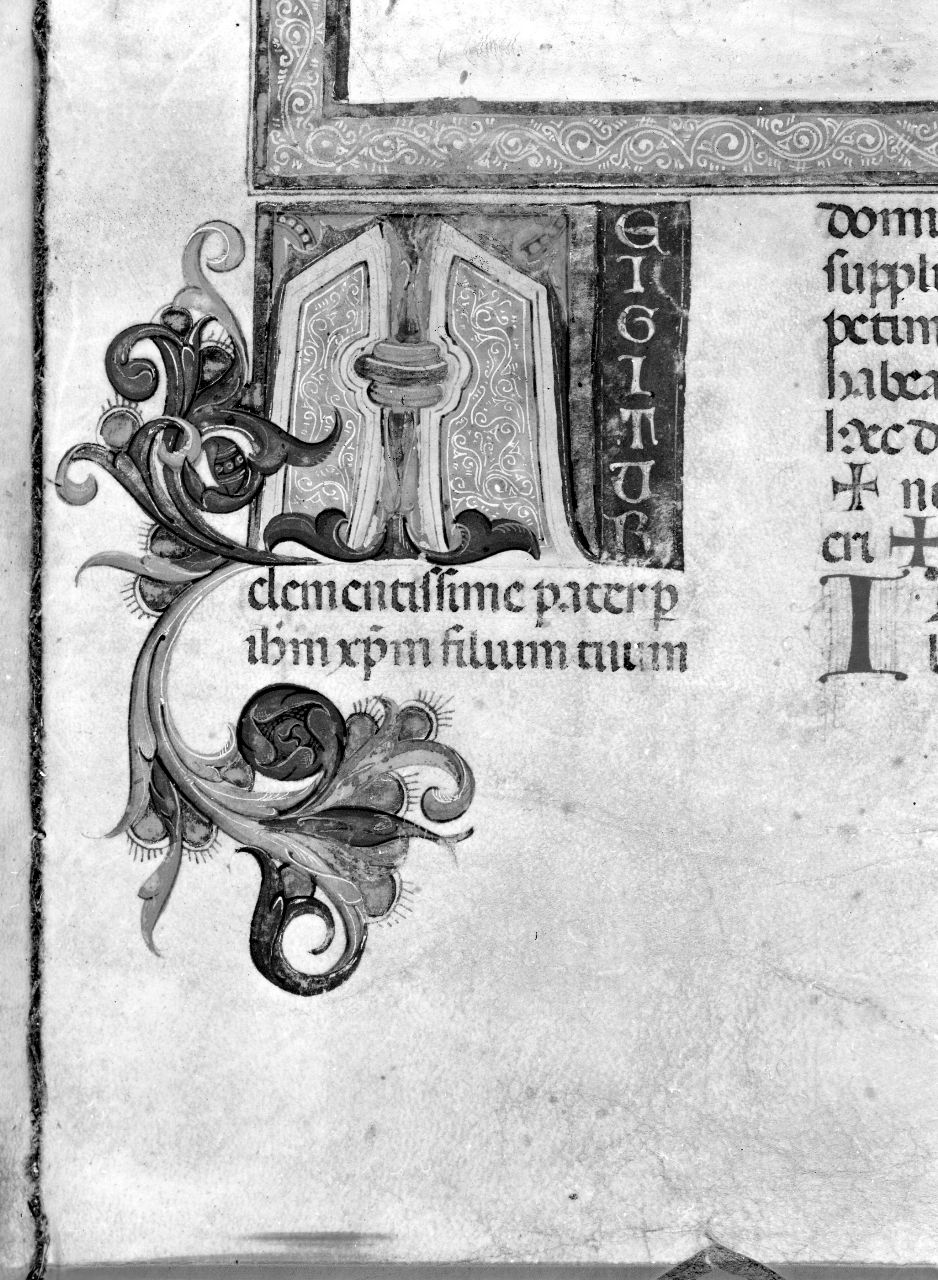 TEIGITUR
clementissime pater p
ihm xpm filium tuum
domi
suppli
petim
habea
hec d
✠ ne
cri ✠
I